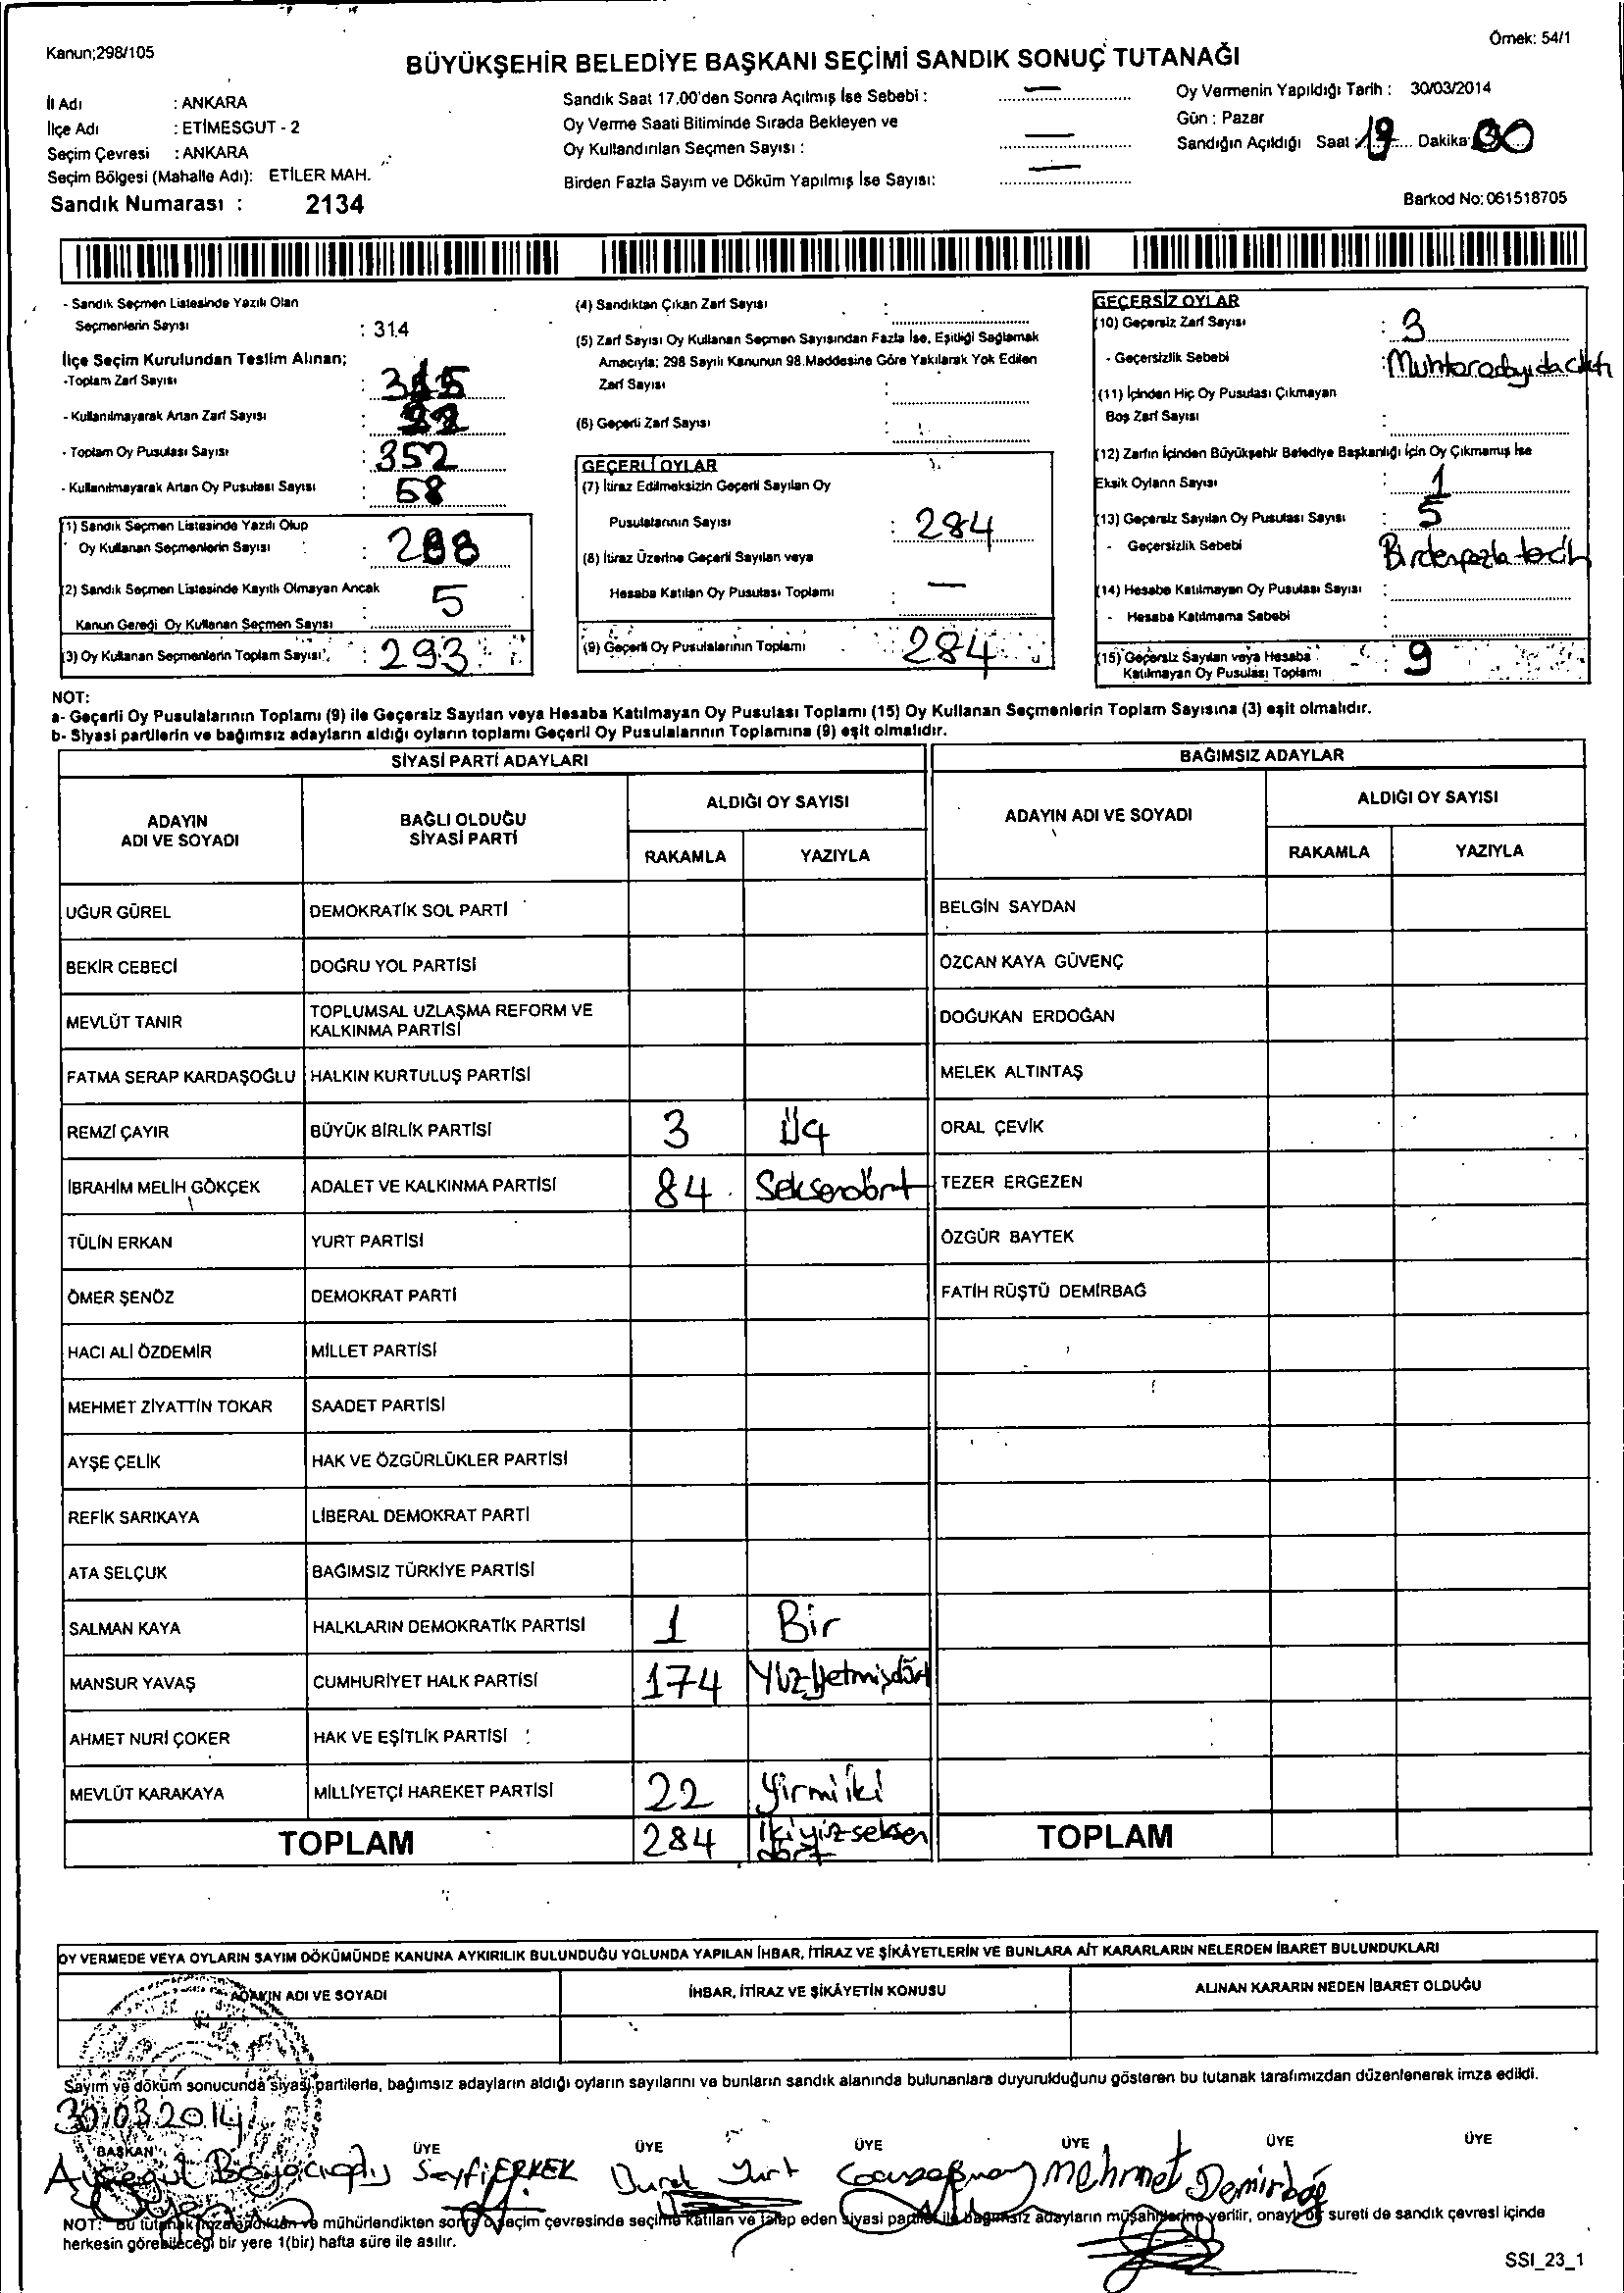 Kanun;298/105
Örnek: 54/1
BÜYÜKŞEHİR BELEDİYE BAŞKANI SEÇİMİ SANDIK SONUÇ TUTANAĞI
İl Adı : ANKARA
İlçe Adı : ETİMESGUT - 2
Seçim Çevresi : ANKARA
Seçim Bölgesi (Mahalle Adı): ETİLER MAH.
Sandık Numarası : 2134
Sandık Saat 17.00'den Sonra Açılmış İse Sebebi : —
Oy Verme Saati Bitiminde Sırada Bekleyen ve
Oy Kullandırılan Seçmen Sayısı : —
Birden Fazla Sayım ve Döküm Yapılmış İse Sayısı: —
Oy Vermenin Yapıldığı Tarih : 30/03/2014
Gün : Pazar
Sandığın Açıldığı Saat : Dakika:
Barkod No: 061518705
- Sandık Seçmen Listesinde Yazılı Olan
Seçmenlerin Sayısı : 314
İlçe Seçim Kurulundan Teslim Alınan;
-Toplam Zarf Sayısı :
- Kullanılmayarak Artan Zarf Sayısı :
- Toplam Oy Pusulası Sayısı : 352
- Kullanılmayarak Artan Oy Pusulası Sayısı : 58
(1) Sandık Seçmen Listesinde Yazılı Olup
Oy Kullanan Seçmenlerin Sayısı : 288
(2) Sandık Seçmen Listesinde Kayıtlı Olmayan Ancak
Kanun Gereği Oy Kullanan Seçmen Sayısı : 5
(3) Oy Kullanan Seçmenlerin Toplam Sayısı : 293
(4) Sandıktan Çıkan Zarf Sayısı :
(5) Zarf Sayısı Oy Kullanan Seçmen Sayısından Fazla İse, Eşitliği Sağlamak
Amacıyla; 298 Sayılı Kanunun 98.Maddesine Göre Yakılarak Yok Edilen
Zarf Sayısı :
(6) Geçerli Zarf Sayısı :
GEÇERLİ OYLAR
(7) İtiraz Edilmeksizin Geçerli Sayılan Oy
Pusulalarının Sayısı : 284
(8) İtiraz Üzerine Geçerli Sayılan veya
Hesaba Katılan Oy Pusulası Toplamı : —
(9) Geçerli Oy Pusulalarının Toplamı : 284
GEÇERSİZ OYLAR
(10) Geçersiz Zarf Sayısı : 3
- Geçersizlik Sebebi : Muhtar adayıda çıktı
(11) İçinden Hiç Oy Pusulası Çıkmayan
Boş Zarf Sayısı :
(12) Zarfın İçinden Büyükşehir Belediye Başkanlığı İçin Oy Çıkmamış İse
Eksik Oyların Sayısı : 1
(13) Geçersiz Sayılan Oy Pusulası Sayısı : 5
- Geçersizlik Sebebi Birden fazla tercih
(14) Hesaba Katılmayan Oy Pusulası Sayısı :
- Hesaba Katılmama Sebebi :
(15) Geçersiz Sayılan veya Hesaba
Katılmayan Oy Pusulası Toplamı : 9
NOT:
a- Geçerli Oy Pusulalarının Toplamı (9) ile Geçersiz Sayılan veya Hesaba Katılmayan Oy Pusulası Toplamı (15) Oy Kullanan Seçmenlerin Toplam Sayısına (3) eşit olmalıdır.
b- Siyasi partilerin ve bağımsız adayların aldığı oyların toplamı Geçerli Oy Pusulalarının Toplamına (9) eşit olmalıdır.
SİYASİ PARTİ ADAYLARI BAĞIMSIZ ADAYLAR
ADAYIN
ADI VE SOYADI
BAĞLI OLDUĞU
SİYASİ PARTİ
ALDIĞI OY SAYISI
RAKAMLA YAZIYLA
ADAYIN ADI VE SOYADI
ALDIĞI OY SAYISI
RAKAMLA YAZIYLA
UĞUR GÜREL DEMOKRATİK SOL PARTİ BELGİN SAYDAN
BEKİR CEBECİ DOĞRU YOL PARTİSİ ÖZCAN KAYA GÜVENÇ
MEVLÜT TANIR TOPLUMSAL UZLAŞMA REFORM VE
KALKINMA PARTİSİ DOĞUKAN ERDOĞAN
FATMA SERAP KARDAŞOĞLU HALKIN KURTULUŞ PARTİSİ MELEK ALTINTAŞ
REMZİ ÇAYIR BÜYÜK BİRLİK PARTİSİ 3 Üç ORAL ÇEVİK
İBRAHİM MELİH GÖKÇEK ADALET VE KALKINMA PARTİSİ 84 Seksendört TEZER ERGEZEN
TÜLİN ERKAN YURT PARTİSİ ÖZGÜR BAYTEK
ÖMER ŞENÖZ DEMOKRAT PARTİ FATİH RÜŞTÜ DEMİRBAĞ
HACI ALİ ÖZDEMİR MİLLET PARTİSİ
MEHMET ZİYATTİN TOKAR SAADET PARTİSİ
AYŞE ÇELİK HAK VE ÖZGÜRLÜKLER PARTİSİ
REFİK SARIKAYA LİBERAL DEMOKRAT PARTİ
ATA SELÇUK BAĞIMSIZ TÜRKİYE PARTİSİ
SALMAN KAYA HALKLARIN DEMOKRATİK PARTİSİ 1 Bir
MANSUR YAVAŞ CUMHURİYET HALK PARTİSİ 174 Yüzyetmişdört
AHMET NURİ ÇOKER HAK VE EŞİTLİK PARTİSİ
MEVLÜT KARAKAYA MİLLİYETÇİ HAREKET PARTİSİ 22 Yirmiiki
TOPLAM 284 İkiyüzseksen
dört TOPLAM
OY VERMEDE VEYA OYLARIN SAYIM DÖKÜMÜNDE KANUNA AYKIRILIK BULUNDUĞU YOLUNDA YAPILAN İHBAR, İTİRAZ VE ŞİKÂYETLERİN VE BUNLARA AİT KARARLARIN NELERDEN İBARET BULUNDUKLARI
ADAYIN ADI VE SOYADI İHBAR, İTİRAZ VE ŞİKÂYETİN KONUSU ALINAN KARARIN NEDEN İBARET OLDUĞU
Sayım ve döküm sonucunda siyasi partilerle, bağımsız adayların aldığı oyların sayılarını ve bunların sandık alanında bulunanlara duyurulduğunu gösteren bu tutanak tarafımızdan düzenlenerek imza edildi.
30.03.2014
BAŞKAN ÜYE ÜYE ÜYE ÜYE ÜYE ÜYE
Ayşegül Boyacıoğlu Seyfi ERKEK Durak Yurt Mehmet Demirbağ
NOT: Bu tutanak imzalandıktan ve mühürlendikten sonra o seçim çevresinde seçime katılan ve talep eden siyasi partiler ile bağımsız adayların müşahitlerine verilir, onaylı bir sureti de sandık çevresi içinde
herkesin görebileceği bir yere 1(bir) hafta süre ile asılır.
SSI_23_1